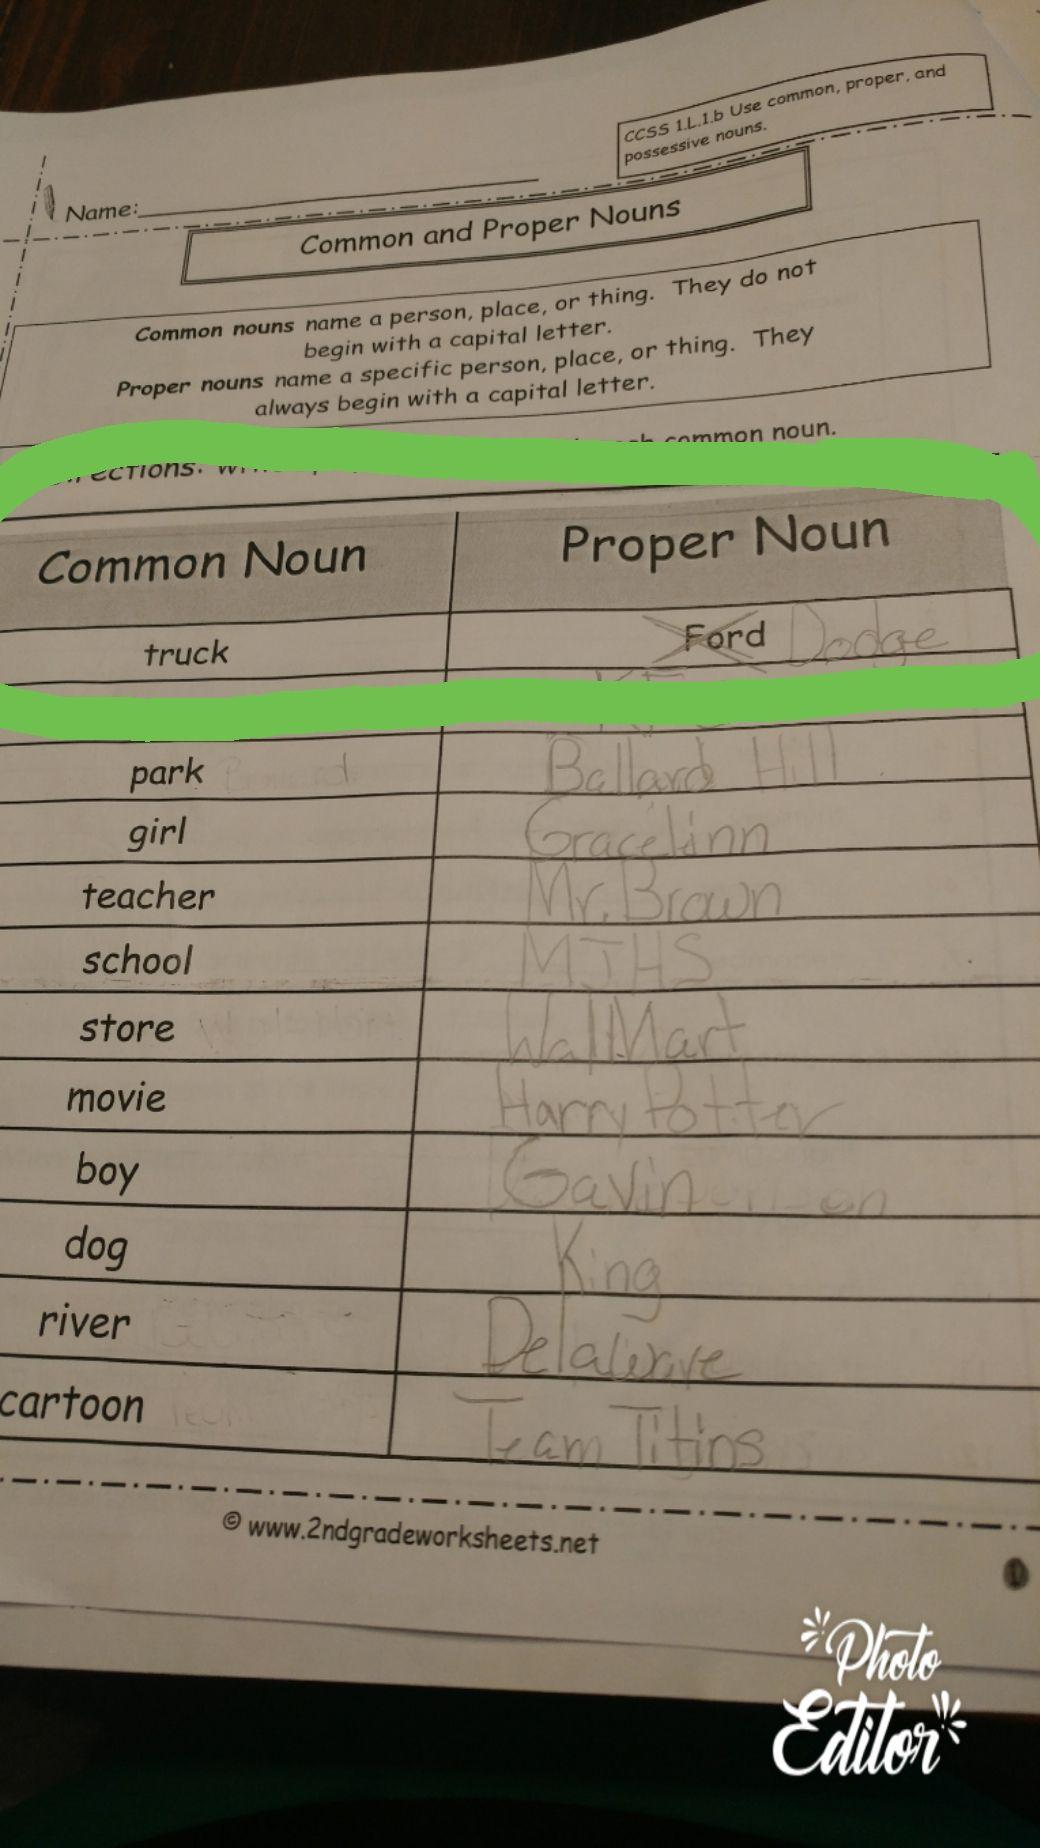 CCSS 1.L.1.b Use common, proper, and
possessive nouns.
Name:
Common and Proper Nouns
Common nouns name a person, place, or thing. They do not
begin with a capital letter.
Proper nouns name a specific person, place, or thing. They
always begin with a capital letter.
common noun.
Common Noun Proper Noun
truck Ford Dodge
park Ballard Hill
girl Gracelinn
teacher Mr. Brown
school MTHS
store WallMart
movie Harry Potter
boy Gavin
dog King
river Delawave
cartoon Team Titins
© www.2ndgradeworksheets.net
1
Photo
Editor